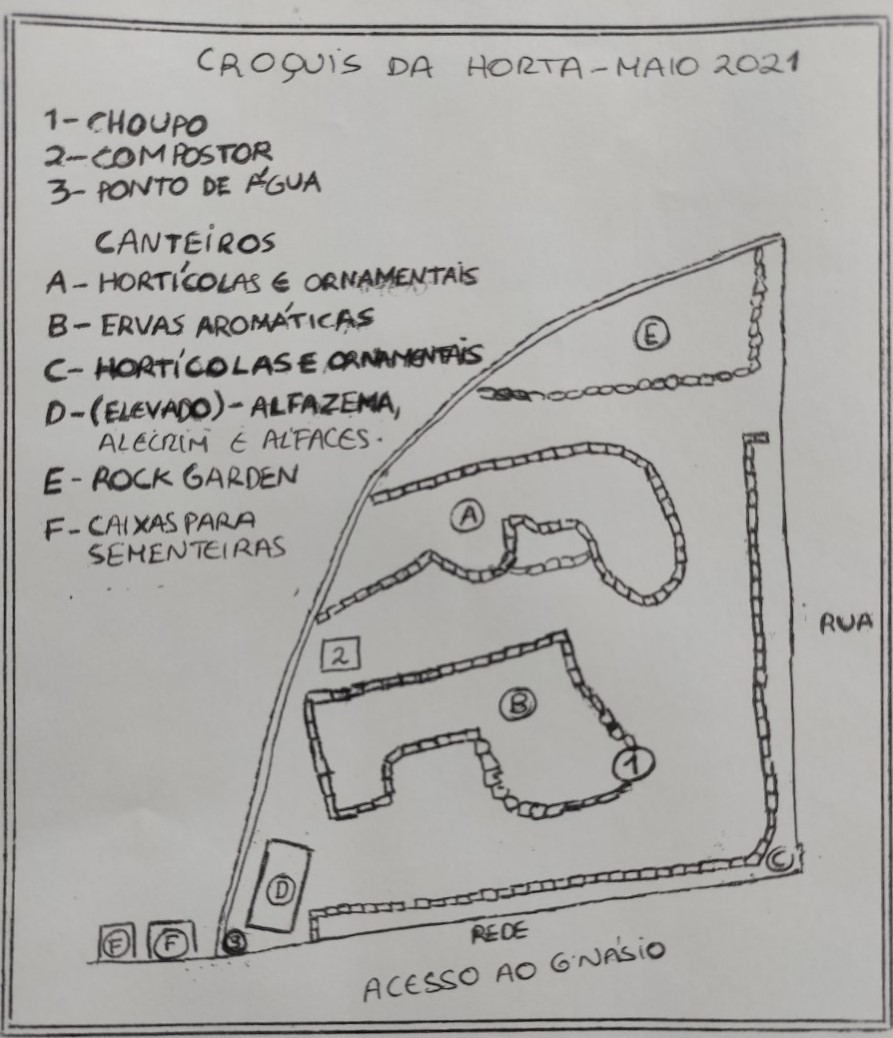 CROQUIS DA HORTA - MAIO 2021
1- CHOUPO
2- COMPOSTOR
3- PONTO DE ÁGUA
CANTEIROS
A - HORTÍCOLAS E ORNAMENTAIS
B - ERVAS AROMÁTICAS
C - HORTÍCOLAS E ORNAMENTAIS
D - (ELEVADO) - ALFAZEMA,
ALECRIM E ALFACES.
E - ROCK GARDEN
F - CAIXAS PARA
SEMENTEIRAS
E
A
RUA
2
B
1
C
D
F
F
3
REDE
ACESSO AO GINÁSIO